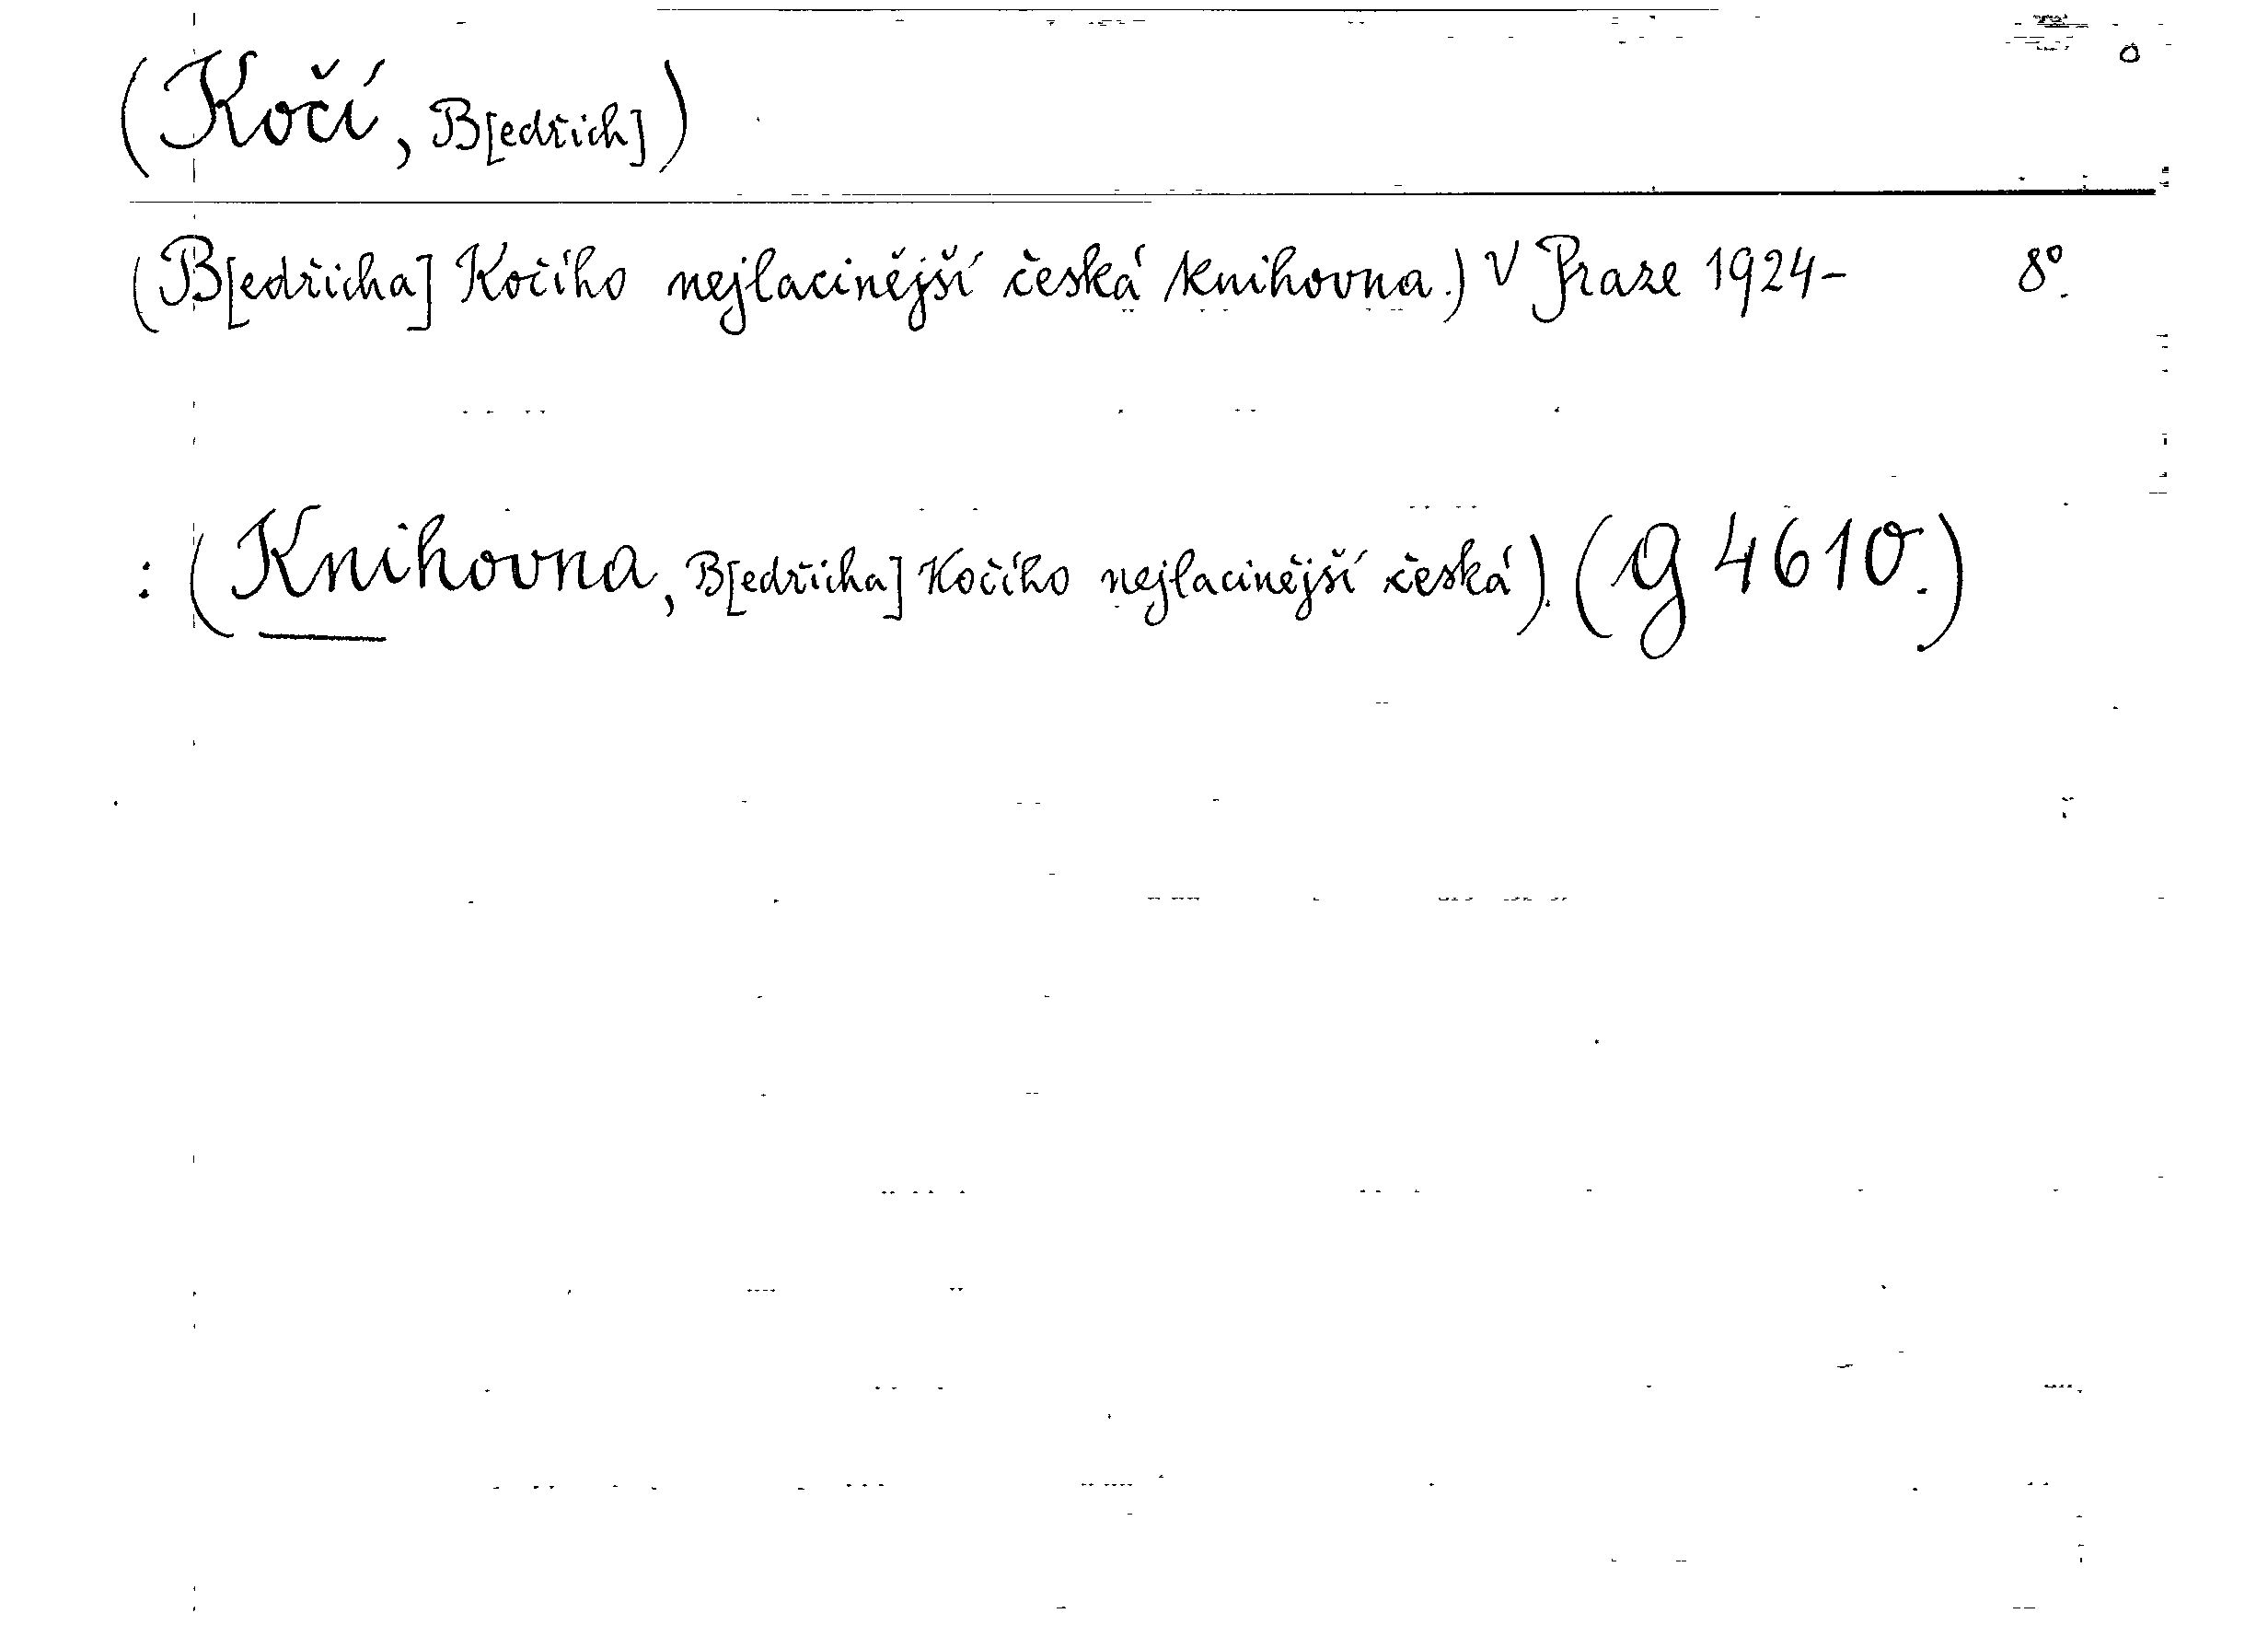 (Kočí, B[edřich])
(B[edřicha] Kočího nejlacinější česká knihovna.) V Praze 1924- 8°.
: (Knihovna, B[edřicha] Kočího nejlacinější česká). (G 4610.)